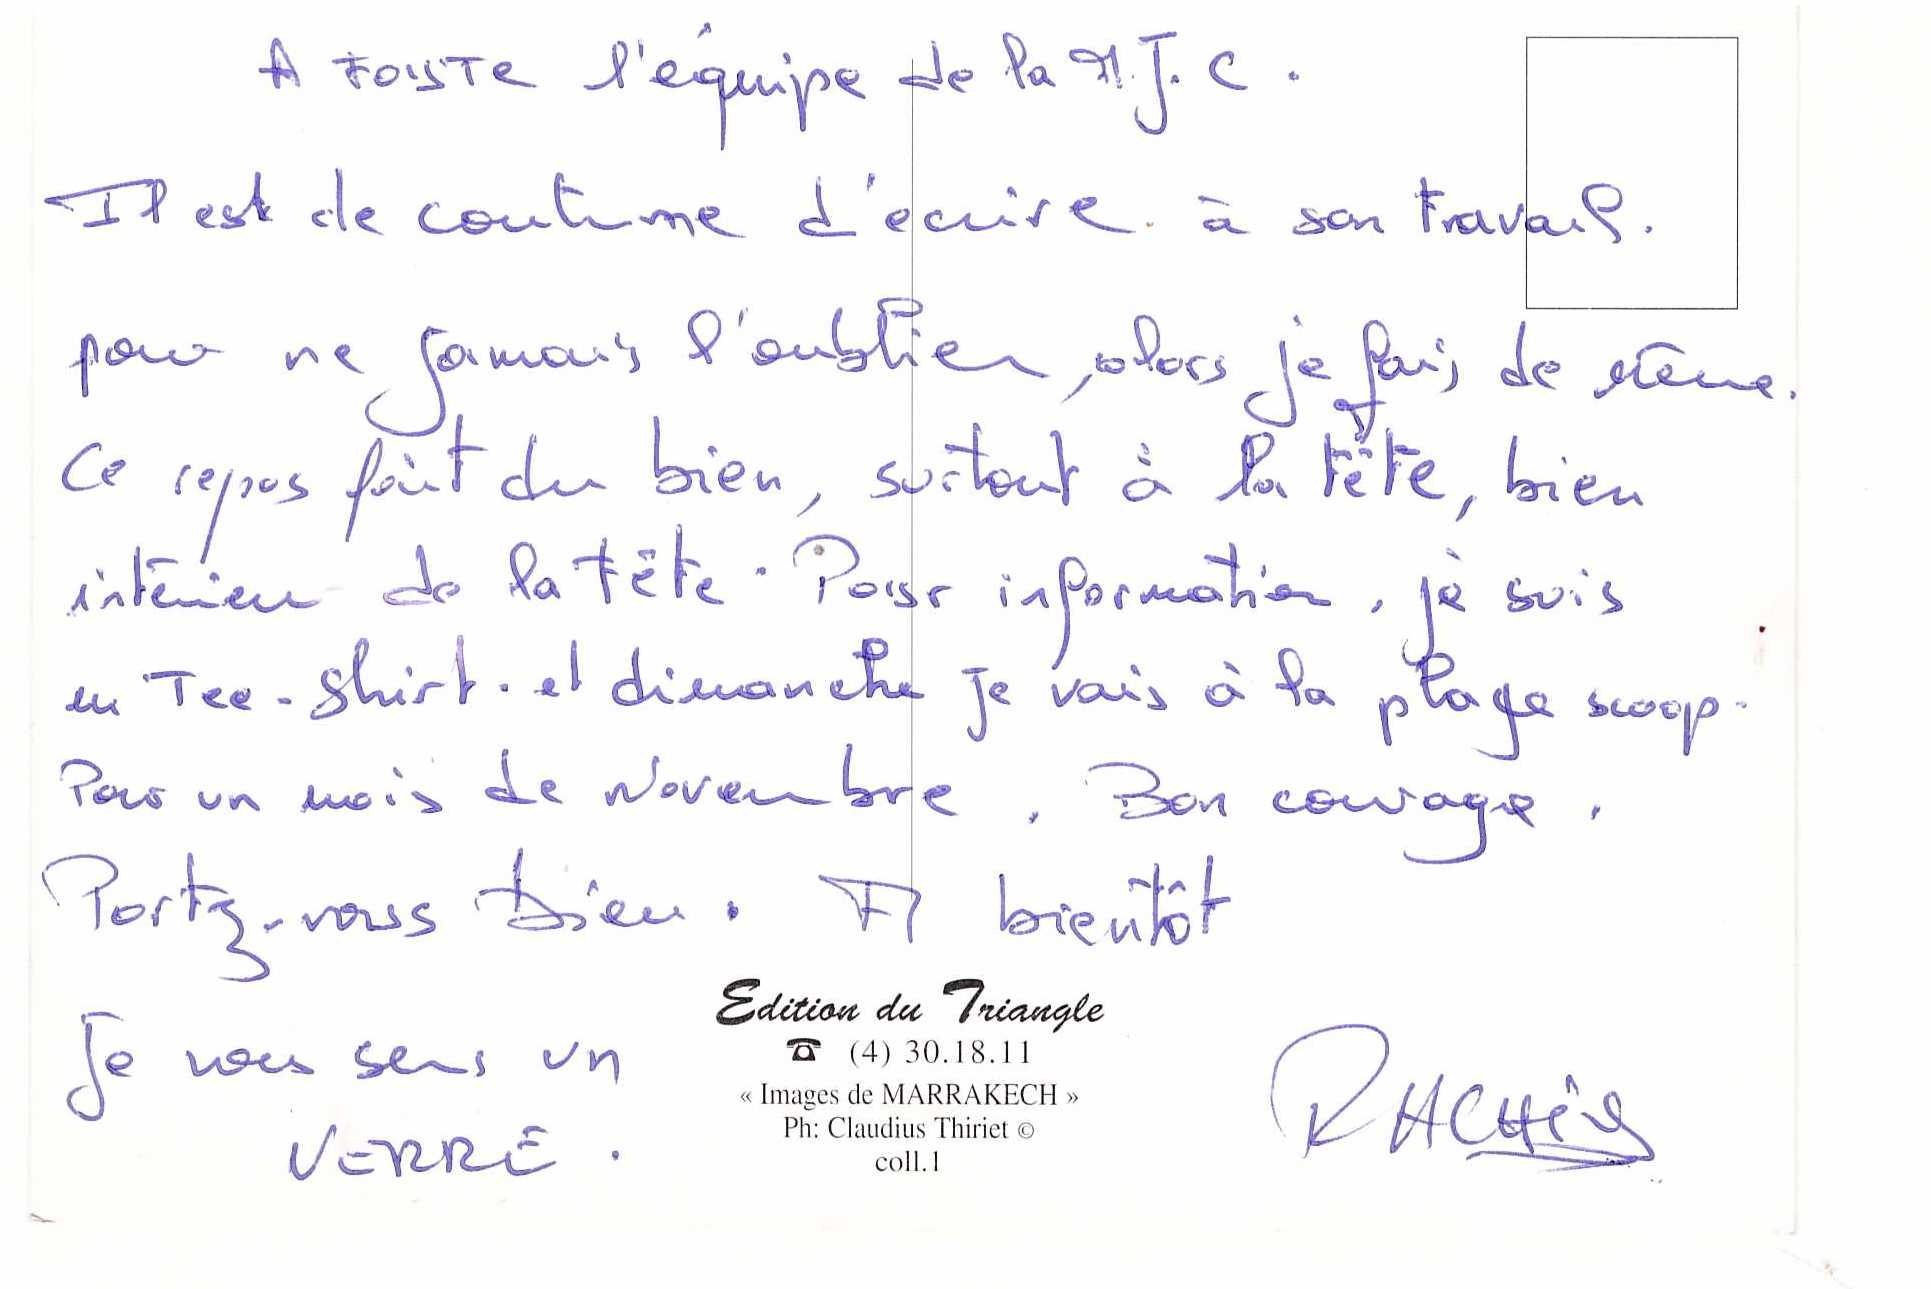 A toute l'équipe de la M.J.C.
Il est de coutume d'ecrire à son travail.
pour ne jamais l'oublier, alors je fais de même.
Ce repos fait du bien, surtout à la tête, bien
intérieur de la tête. Pour information, je suis
en Tee-Shirt. et dimanche je vais à la plage scoop.
Pour un mois de Novembre. Bon courage.
Portez-vous bien. A bientôt
Je vous sers un
VERRE.
Edition du Triangle
☎ (4) 30.18.11
« Images de MARRAKECH »
Ph: Claudius Thiriet ©
coll.1